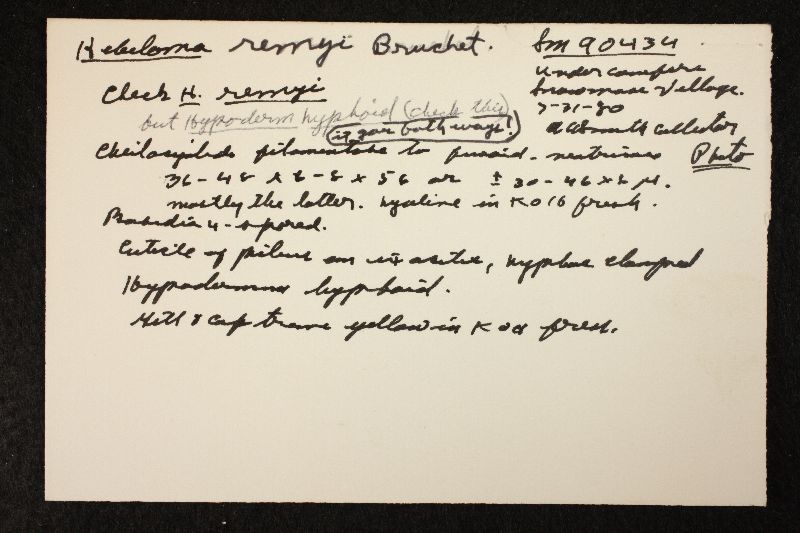 Hebeloma remyi Bruchet.
Sm 90434
under conifers
Snowmass Village.
7-31-80
AHSmith collector
Photo
Check H. remyi
but Hypoderm hyphoid (check this)
it goes both ways!
Cheilocystidia filamentose to fusoid-ventricose
36-48 x 5-8 x 5 or ± 30-46 x 8 µ.
mostly the latter. hyaline in KOH fresh.
Basidia 4-spored.
Cuticle of pileus an ixocutis, hyphae clamped
Hypodermium hyphoid.
Gill & cap trama yellow in KOH fresh.